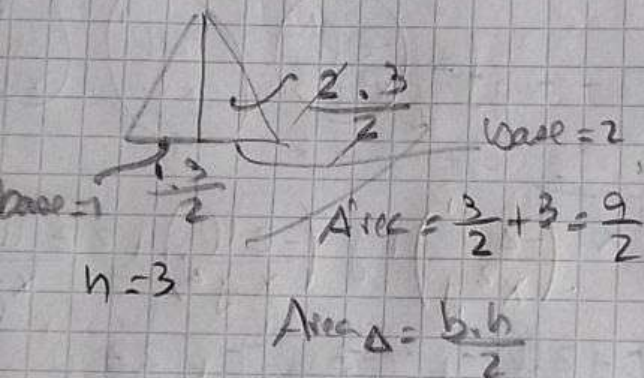 2 . 3
2
base = 2
base = 1
1 . 3
2
Area = 3/2 + 3 = 9/2
h = 3
Area Δ = b.h/2